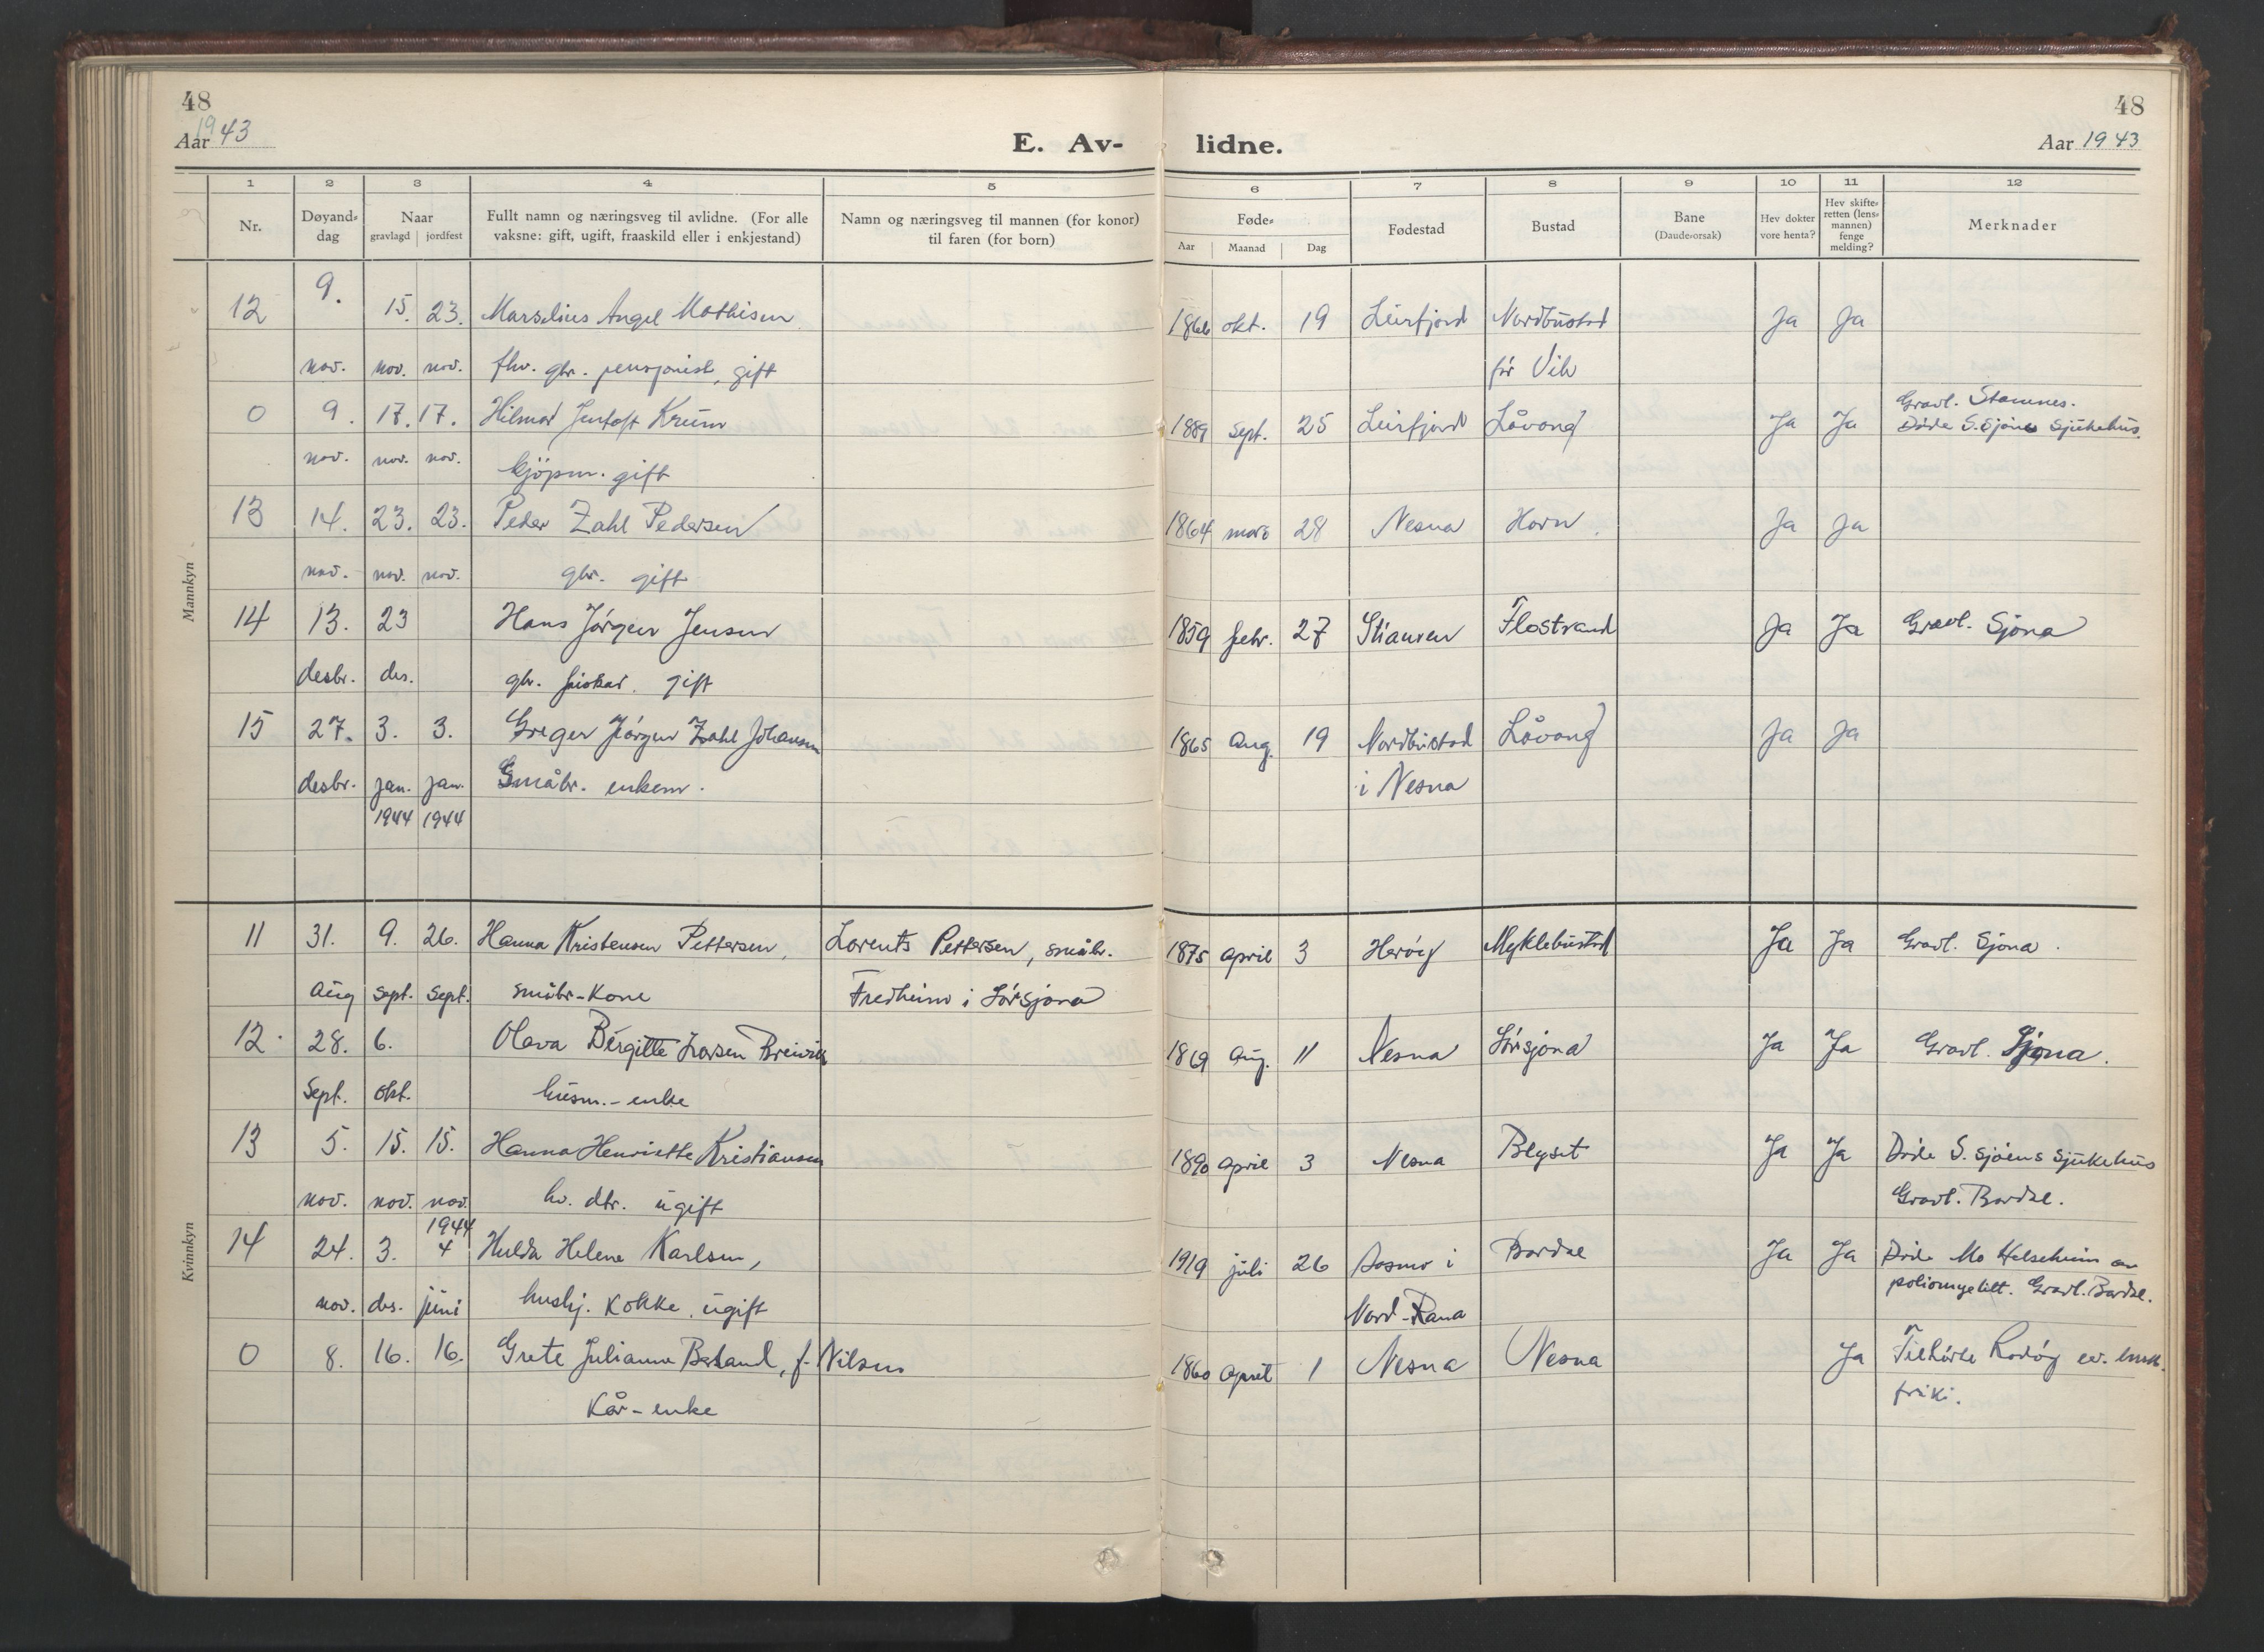 48
48
Aar 1943
E. Av-
lidne.
Aar 1943
1 2 3 4 5 6 7 8 9 10 11 12
Nr.
Døyand-dag
Naar
gravlagd jordfest
Fullt namn og næringsveg til avlidne. (For alle
vaksne: gift, ugift, fraaskild eller i enkjestand)
Namn og næringsveg til mannen (for konor)
til faren (for born)
Føde-
Aar Maanad Dag
Fødestad
Bustad
Bane
(Daude-orsak)
Hev dokter
vore henta?
Hev skifte-
retten (lens-
mannen)
fenge
melding?
Merknader
Mannkyn
12 9. 15. 23. Marselius Angel Mathisen 1866 okt. 19 Leirfjord Nordbustad Ja Ja
nov. nov. nov. fhv. gbr. pensjonist, gift for Vik
0 9. 17. 17. Hilmar Jentoft Krum 1889 sept. 25 Leirfjord Låvong Ja Ja Gravl. Stamnes.
Døde S.sjøens sjukehus.
nov. nov. nov. kjöpm. gift
13 14. 23. 23. Peder Zahl Pedersen 1864 mars 28 Nesna Horn. Ja Ja
nov. nov. nov. gbr. gift
14 13. 23 Hans Jörgen Jensen 1859 febr. 27 Flostrand Ja Ja Gravl. Sjona
desbr. des. gbr. gift
15 27. 3. 3. Greger Jörgen Zahl Johansen 1865 Aug. 19 Nordbustad Låvong Ja Ja
desbr. jan. jan. Småbr. enkem. i Nesna
1944 1944
Kvinnkyn
11 31. 9. 26. Hanna Kristensen Pettersen, Lorents Pettersen, småbr. 1875 april 3 Heröy Myklebustad Ja Ja Gravl. Sjona.
Aug sept. sept. småbr-kone Fredheim i Sörsjona
12. 28. 6. Olava Birgitte Larsen Breivik 1869 Aug. 11 Nesna Sörsjona Ja Ja Gravl. Sjona.
Sept. okt. husm.-enke
13 5. 15. 15. Hanna Henriette Kristiansen 1890 april 3 Nesna Ja Ja Döde S.sjöens sjukehus
nov. nov. nov. dtr. ugift Gravl. Bardal.
1944
14 24. 3. 4 Hulda Helene Karlsen, 1919 juli 26 i Bardal Ja Ja Döde Mo Helseheim av
nov. des. juni hushj. kokke. ugift Nord-Rana poliomyelitt. Gravl. Bardal.
0 8. 16. 16. Grete Julianne f. Nilsen 1860 april 1 Nesna Nesna Ja Tilhörte Rödöy ev. luth.
Kår-enke friki.